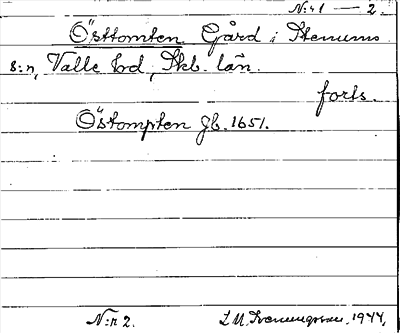 N:r 1 — 2.
Östtomten. Gård i Stenums
s:n, Valle hd, Skb. län.
forts.
Östompten Jb. 1651.
N:r 2.
1944.